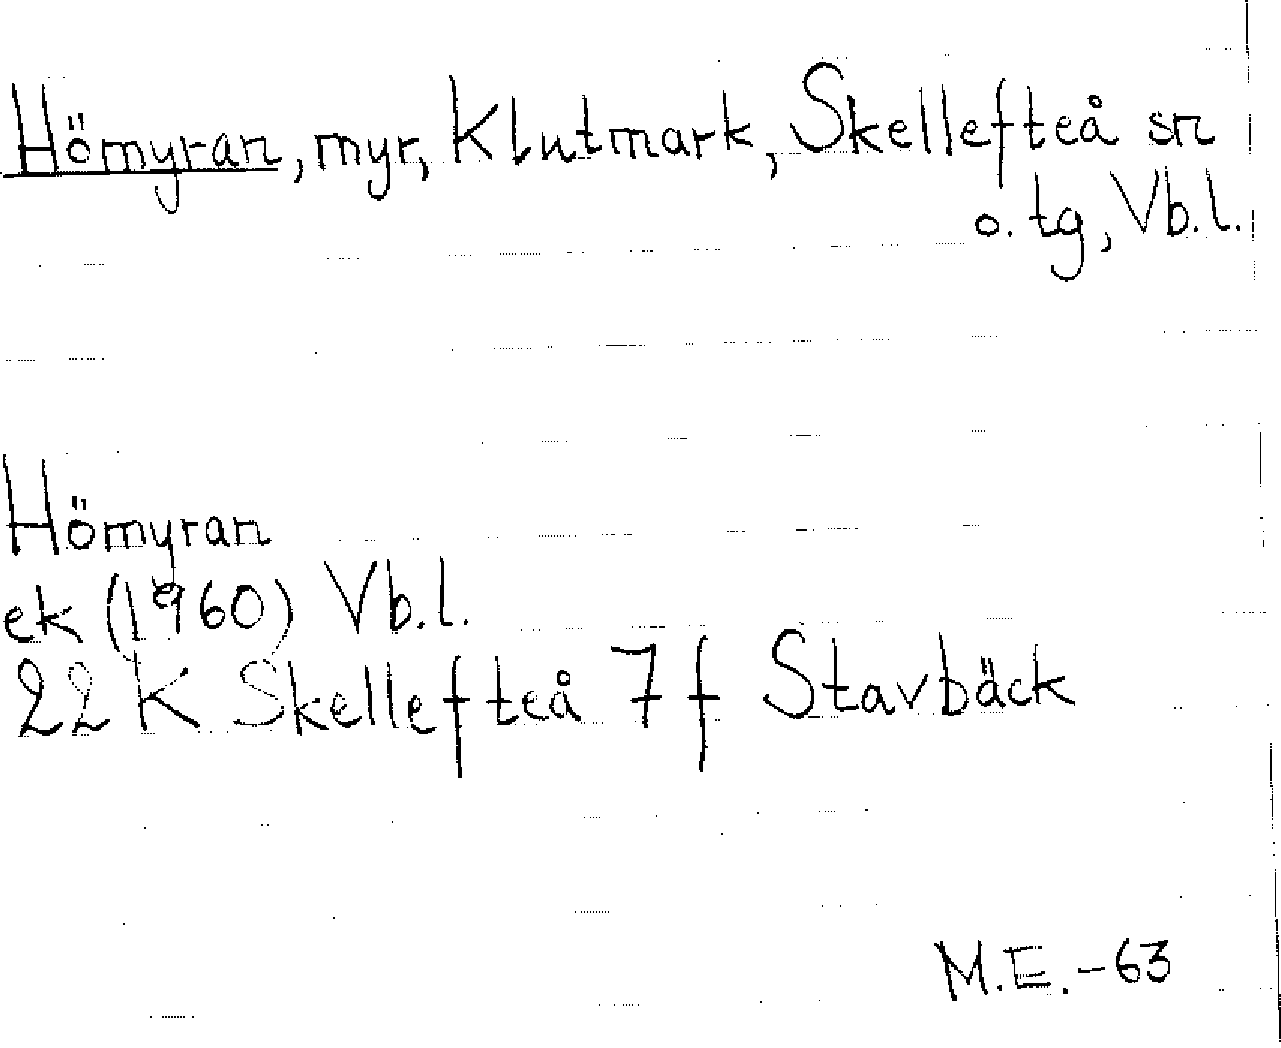 Hömyran, myr, Klutmark, Skellefteå sn
o. tg, Vb.l.
Hömyran
ek (1960) Vb.l.
22 K Skellefteå 7 f Stavbäck
M.E.-63